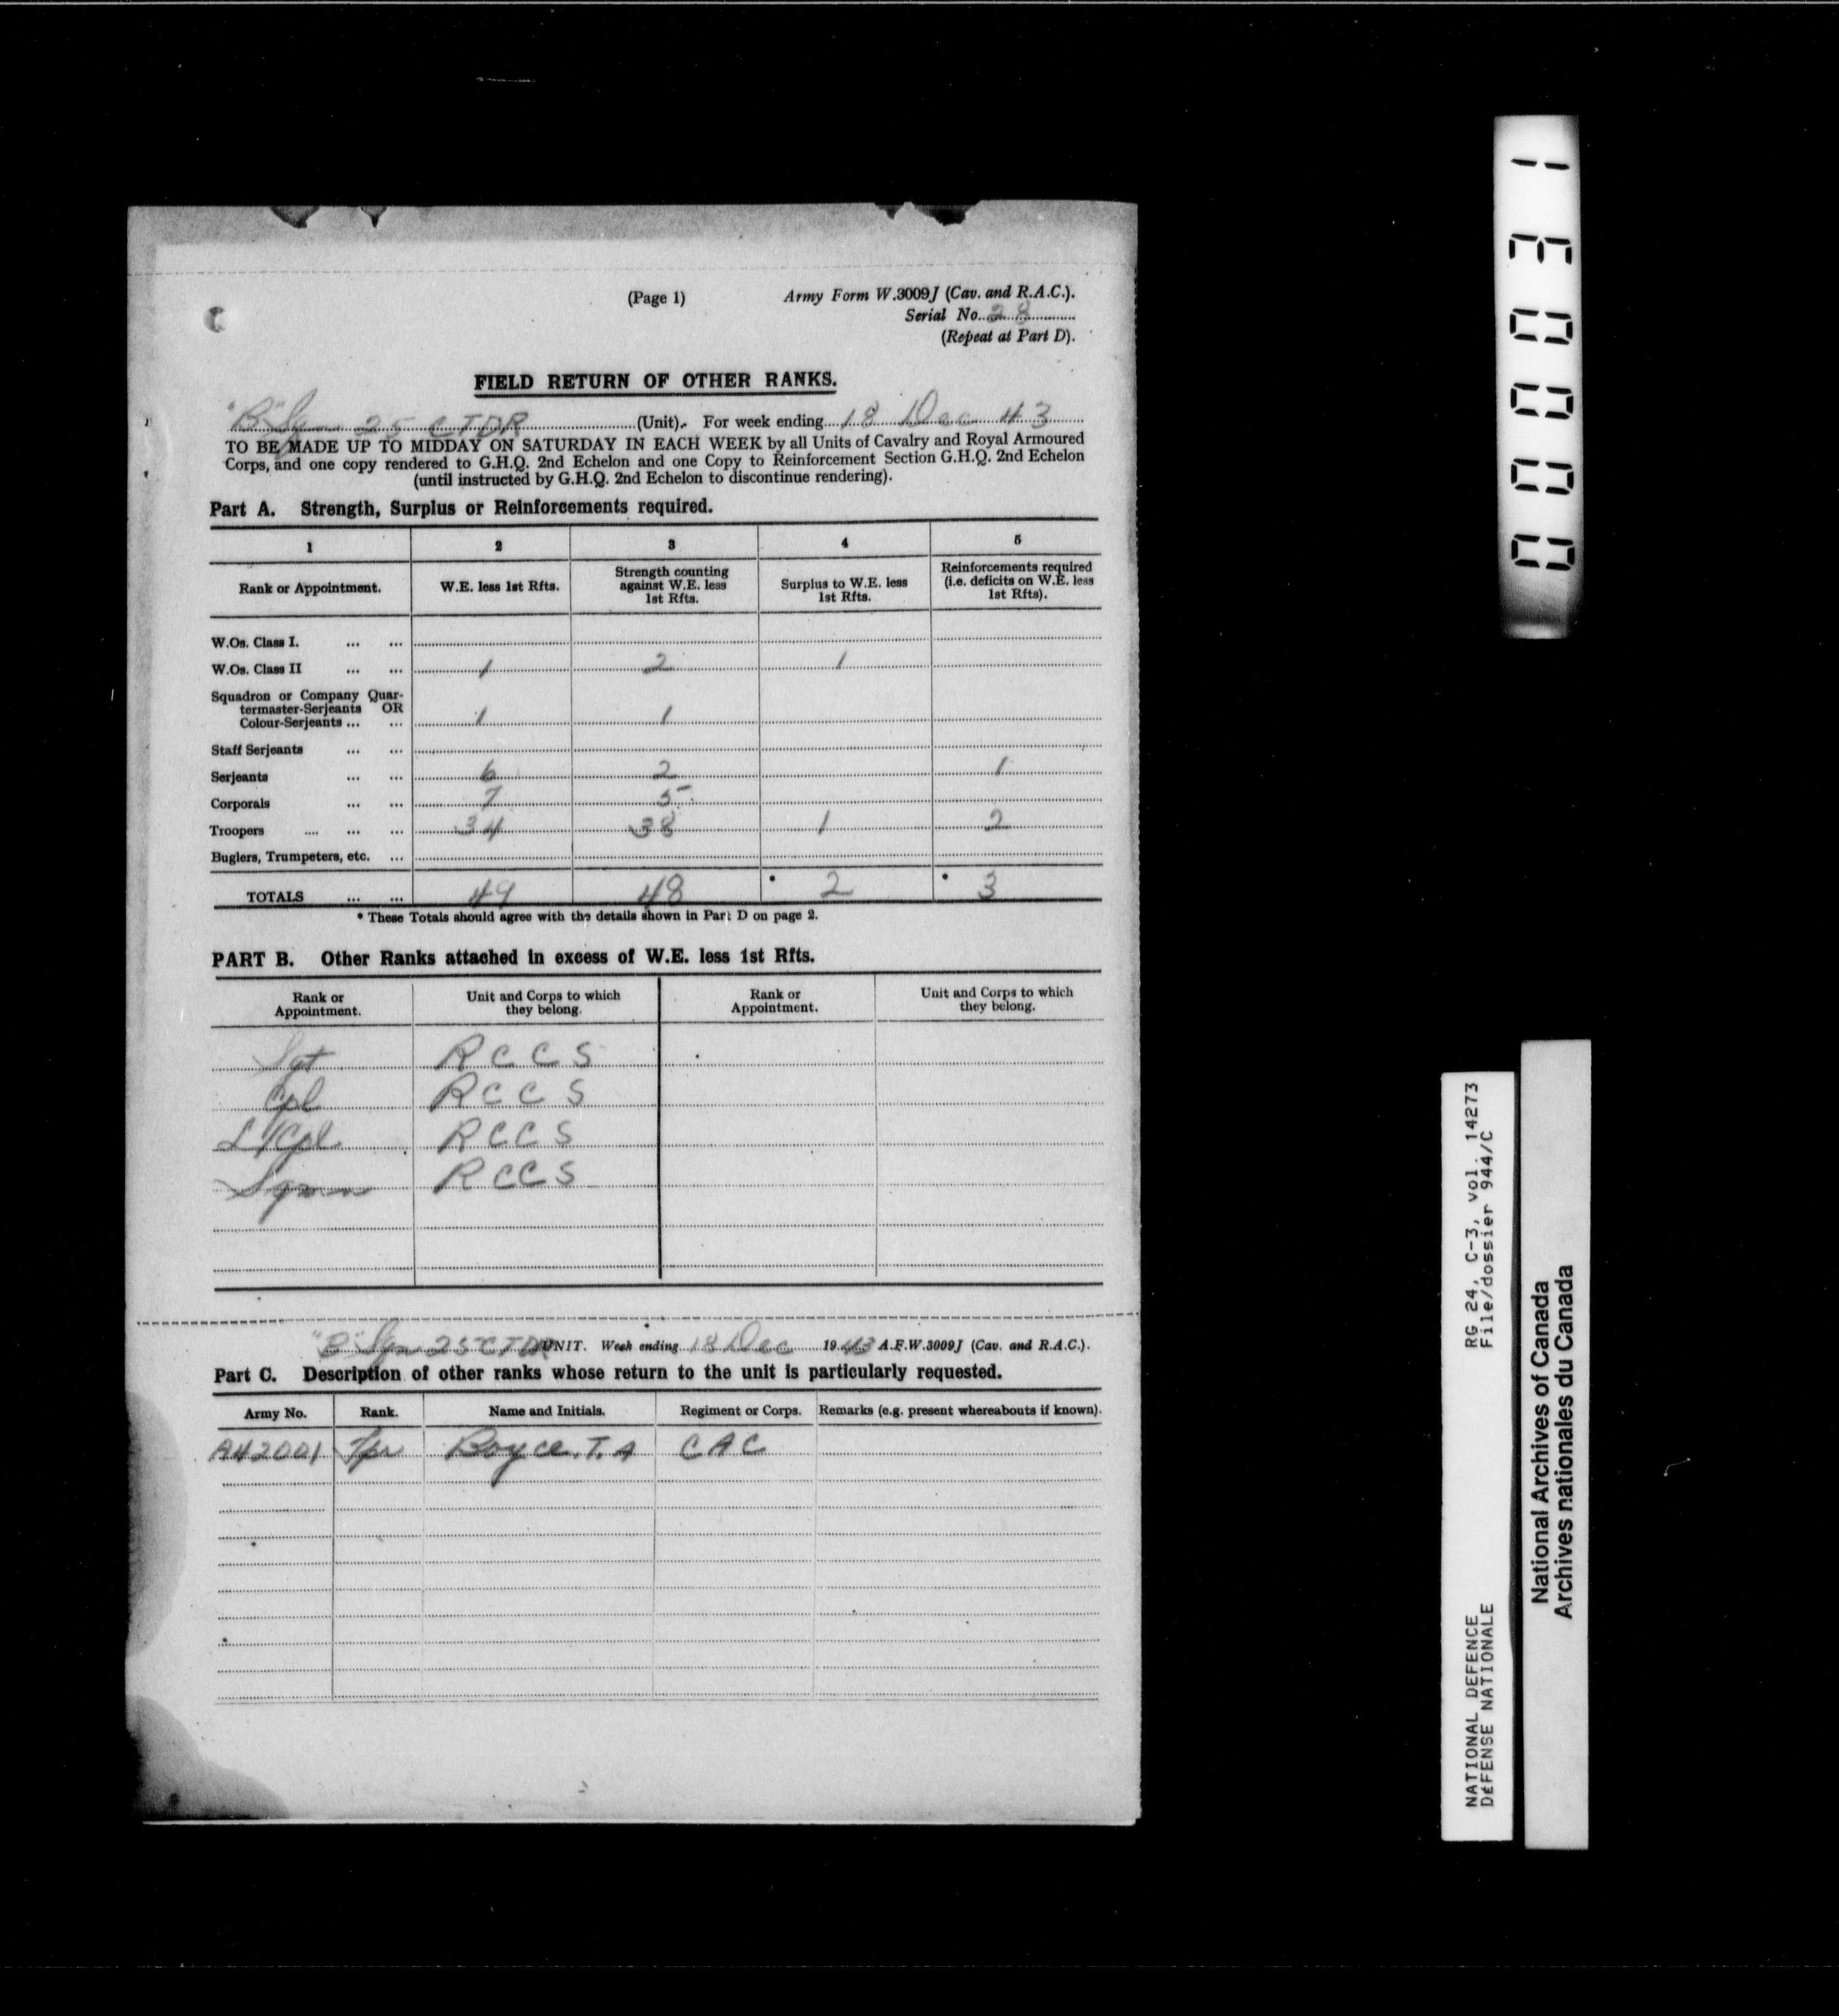 (Page 1) Army Form W.3009J (Cav. and R.A.C.).
Serial No. 28
(Repeat at Part D).
FIELD RETURN OF OTHER RANKS.
"B" Sqn 25 CTDR (Unit). For week ending 18 Dec 43
TO BE MADE UP TO MIDDAY ON SATURDAY IN EACH WEEK by all Units of Cavalry and Royal Armoured
Corps, and one copy rendered to G.H.Q. 2nd Echelon and one Copy to Reinforcement Section G.H.Q. 2nd Echelon
(until instructed by G.H.Q. 2nd Echelon to discontinue rendering).
Part A. Strength, Surplus or Reinforcements required.
1 2 3 4 5
Rank or Appointment. W.E. less 1st Rfts. Strength counting against W.E. less 1st Rfts. Surplus to W.E. less 1st Rfts. Reinforcements required (i.e. deficits on W.E. less 1st Rfts).
W.Os. Class I. ... ...
W.Os. Class II ... ... 1 2 1
Squadron or Company Quar-
termaster-Serjeants OR
Colour-Serjeants ... ... 1 1
Staff Serjeants ... ...
Serjeants ... ... 6 2 1
Corporals ... ... 7 5
Troopers .... ... ... 34 38 1 2
Buglers, Trumpeters, etc. ...
TOTALS ... ... 49 48 * 2 * 3
* These Totals should agree with the details shown in Part D on page 2.
PART B. Other Ranks attached in excess of W.E. less 1st Rfts.
Rank or Appointment. Unit and Corps to which they belong. Rank or Appointment. Unit and Corps to which they belong.
Sgt RCCS
Cpl RCCS
L/Cpl RCCS
Sgmn RCCS
"B" Sqn 25 CTDR UNIT. Week ending 18 Dec 1943 A.F.W.3009J (Cav. and R.A.C.).
Part C. Description of other ranks whose return to the unit is particularly requested.
Army No. Rank. Name and Initials. Regiment or Corps. Remarks (e.g. present whereabouts if known).
A42001 Tpr Boyce. T. A CAC
000031
RG 24, C-3, vol. 14273
File/dossier 944/C
NATIONAL DEFENCE
DÉFENSE NATIONALE
National Archives of Canada
Archives nationales du Canada